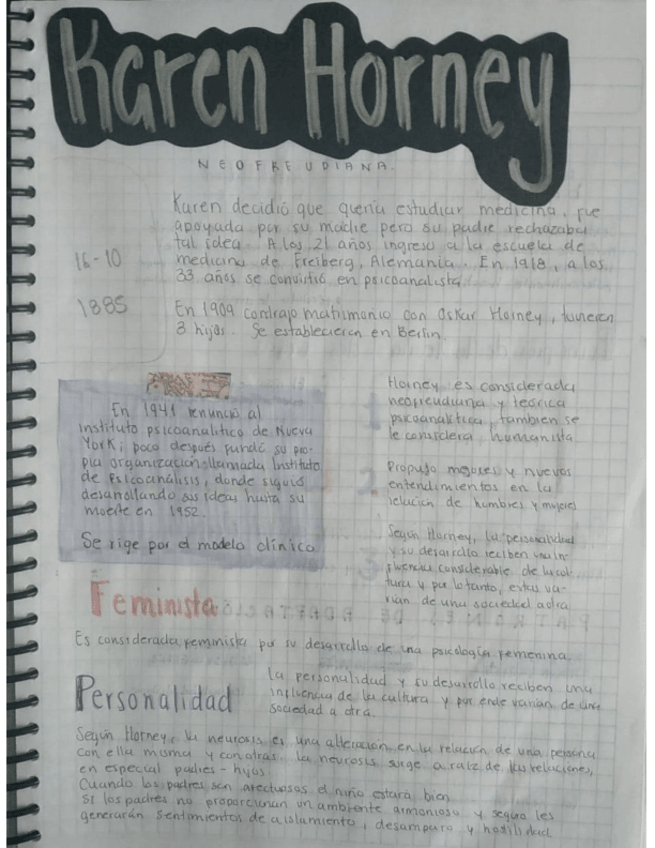 Karen Horney
NEOFREUDIANA.
Karen decidió que quería estudiar medicina, fue
apoyada por su madre pero su padre rechazaba
tal idea. A los 21 años ingresó a la escuela de
medicina de Freiberg, Alemania. En 1918, a los
33 años se convirtió en psicoanalista.
16-10
1885
En 1909 contrajo matrimonio con Oskar Horney, tuvieron
3 hijos. Se establecieron en Berlin.
En 1941 renunció al
instituto psicoanalitico de Nueva
York; poco después fundó su pro-
pia organización llamada Instituto
de Psicoanálisis, donde siguió
desarrollando sus ideas hasta su
muerte en 1952.
Se rige por el modelo clínico
Horney es considerada
neofreudiana y teórica
psicoanalítica, tambien se
le considera humanista
Propuso mejores y nuevos
entendimientos en la
relación de hombres y mujeres
Según Horney, la personalidad
y su desarrollo reciben una in-
fluencia considerable de la cul-
tura y por lo tanto, estas va-
rían de una sociedad a otra.
Feminista
Es considerada feminista por su desarrollo de una psicología femenina.
Personalidad
La personalidad y su desarrollo reciben una
influencia de la cultura y por ende varian de una
sociedad a otra.
Según Horney, la neurosis es una alteración en la relación de una persona
con ella misma y con otras. La neurosis surge a raíz de las relaciones,
en especial padres-hijos.
Cuando los padres son afectuosos el niño estará bien
Si los padres no proporcionan un ambiente armonioso y seguro les
generarán sentimientos de aislamiento, desamparo y hostilidad.